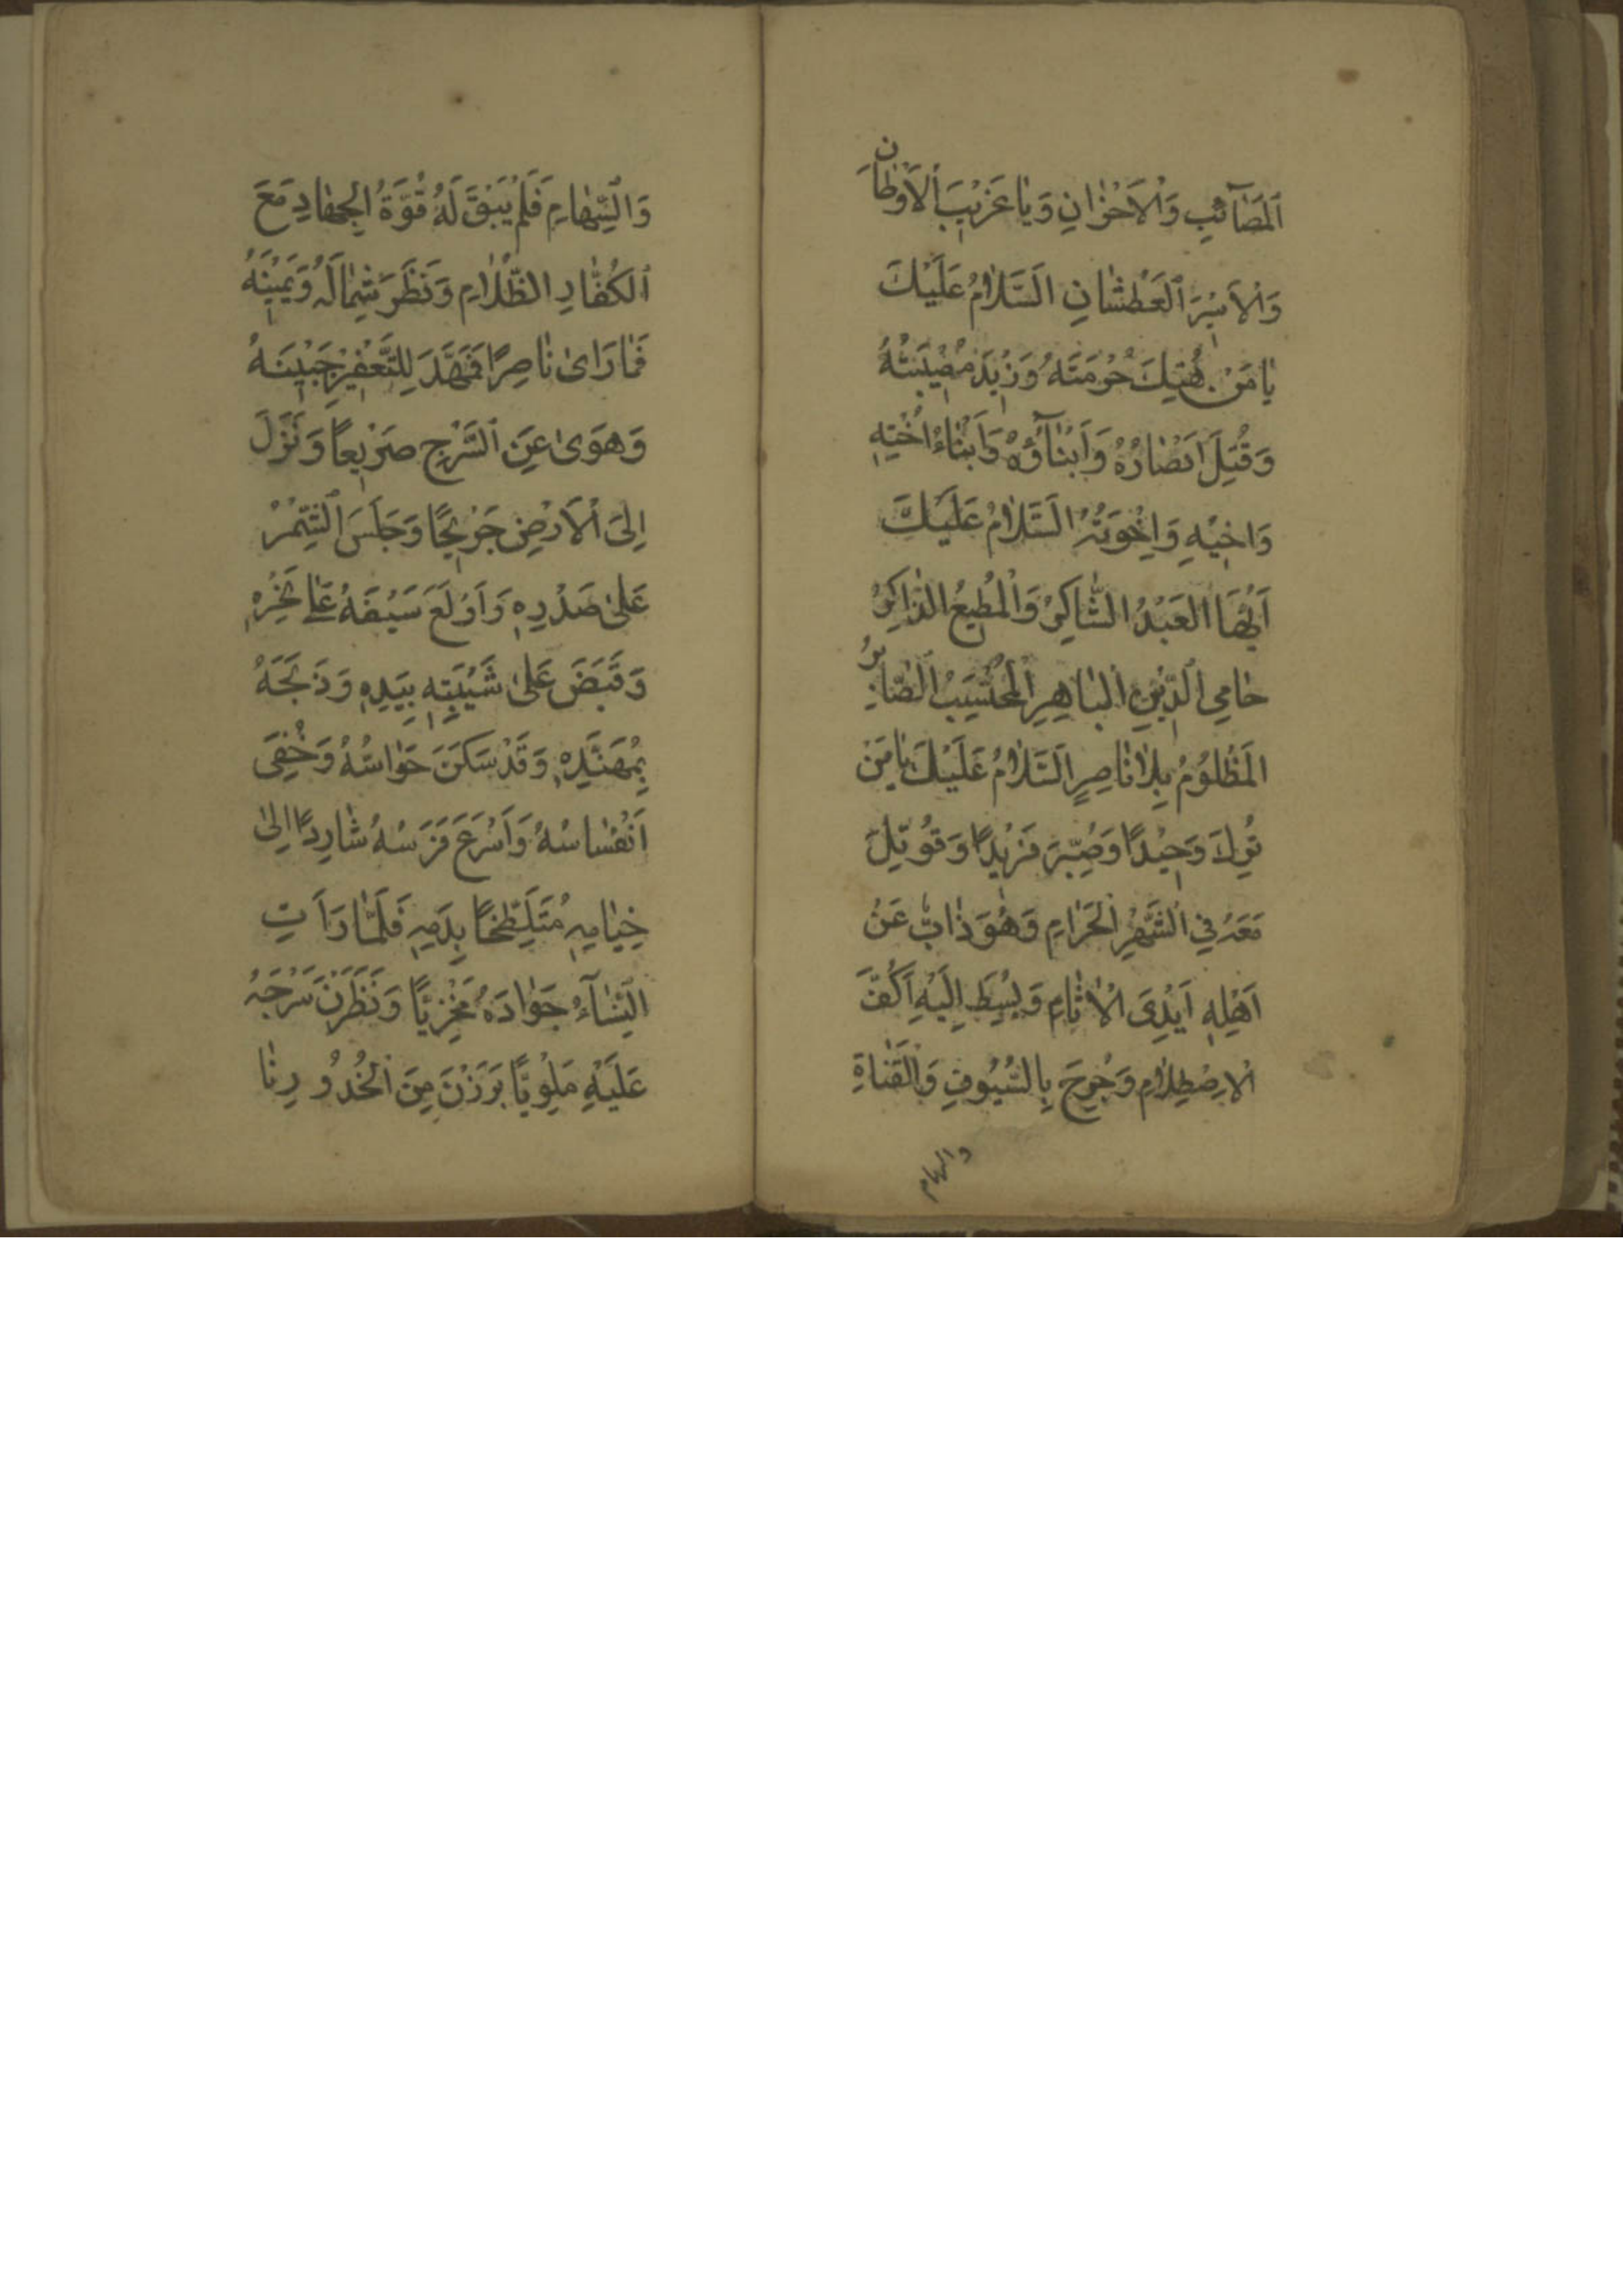 اَلْمَصَآئِبِ وَالْاَحْزانِ وَيا غَرْيبَ الْاَوْطانِ
وَالْاَسْيرَ الْعَطْشانِ اَلسَّلامُ عَلَيْكَ
يا مَنْ هُتِكَ حُرْمَتَهُ وَزْيدَ مُصْيبَتُهُ
وَقُتِلَ اَنْصارُهُ وَاَبْنآؤُهُ وَاَبْناءُ اُخْتِهِ
وَاَخْيهِ وَاِخْوَتُهُ اَلسَّلامُ عَلَيْكَ
اَيُّهَا الْعَبْدُ الشّاكِرُ وَالْمُطيعُ الذّاكِرُ
حامِى الدّينِ الْباهِرِ الْمُحْتَسِبُ الصّابِرُ
الْمَظْلُومُ بِلا ناصِرٍ اَلسَّلامُ عَلَيْكَ يا مَنْ
تُرِكَ وَحْيدًا وَصُبِّرَ فَرْيدًا وَقُوتِلَ
مَعَهُ فِي الشَّهْرِ الْحَرامِ وَهُوَ ذابٌّ عَنْ
اَهْلِهِ اَيْدِىَ الْاَثامِ وَبُسِطَ اِلَيْهِ اَكُفَّ
الْاِصْطِلامِ وَجُرِحَ بِالسُّيُوفِ وَالْقَناةِ
والسهام
وَالسِّهامِ فَلَمْ يَبْقَ لَهُ قُوَّةُ الْجِهادِ مَعَ
الْكُفّارِ الظُّلّامِ وَنَظَرَ شِمالَهُ وَيَمْينَهُ
فَما رَاىٰ ناصِرًا فَمَهَّدَ لِلتَّعْفْيرِ جَبْينَهُ
وَهَوىٰ عَنِ السَّرْجِ صَرْيعًا وَنَزَلَ
اِلَى الْاَرْضِ جَرْيحًا وَجَلَسَ الشِّمْرُ
عَلىٰ صَدْرِهِ وَاَوْلَغَ سَيْفَهُ عَلىٰ نَحْرِهِ
وَقَبَضَ عَلىٰ شَيْبَتِهِ بِيَدِهِ وَذَبَحَهُ
بِمُهَنَّدِهِ وَقَدْ سَكَنَ حَواسُّهُ وَخُفِىَ
اَنْفاسُهُ وَاَسْرَعَ فَرَسُهُ شارِدًا اِلىٰ
خِيامِهِ مُتَلَطِّخًا بِدَمِهِ فَلَمّا رَاَتِ
النِّسآءُ جَوادَهُ مَخْزِيًّا وَنَظَرْنَ سَرْجَهُ
عَلَيْهِ مَلْوِيًّا بَرَزْنَ مِنَ الْخُدُورِ نا